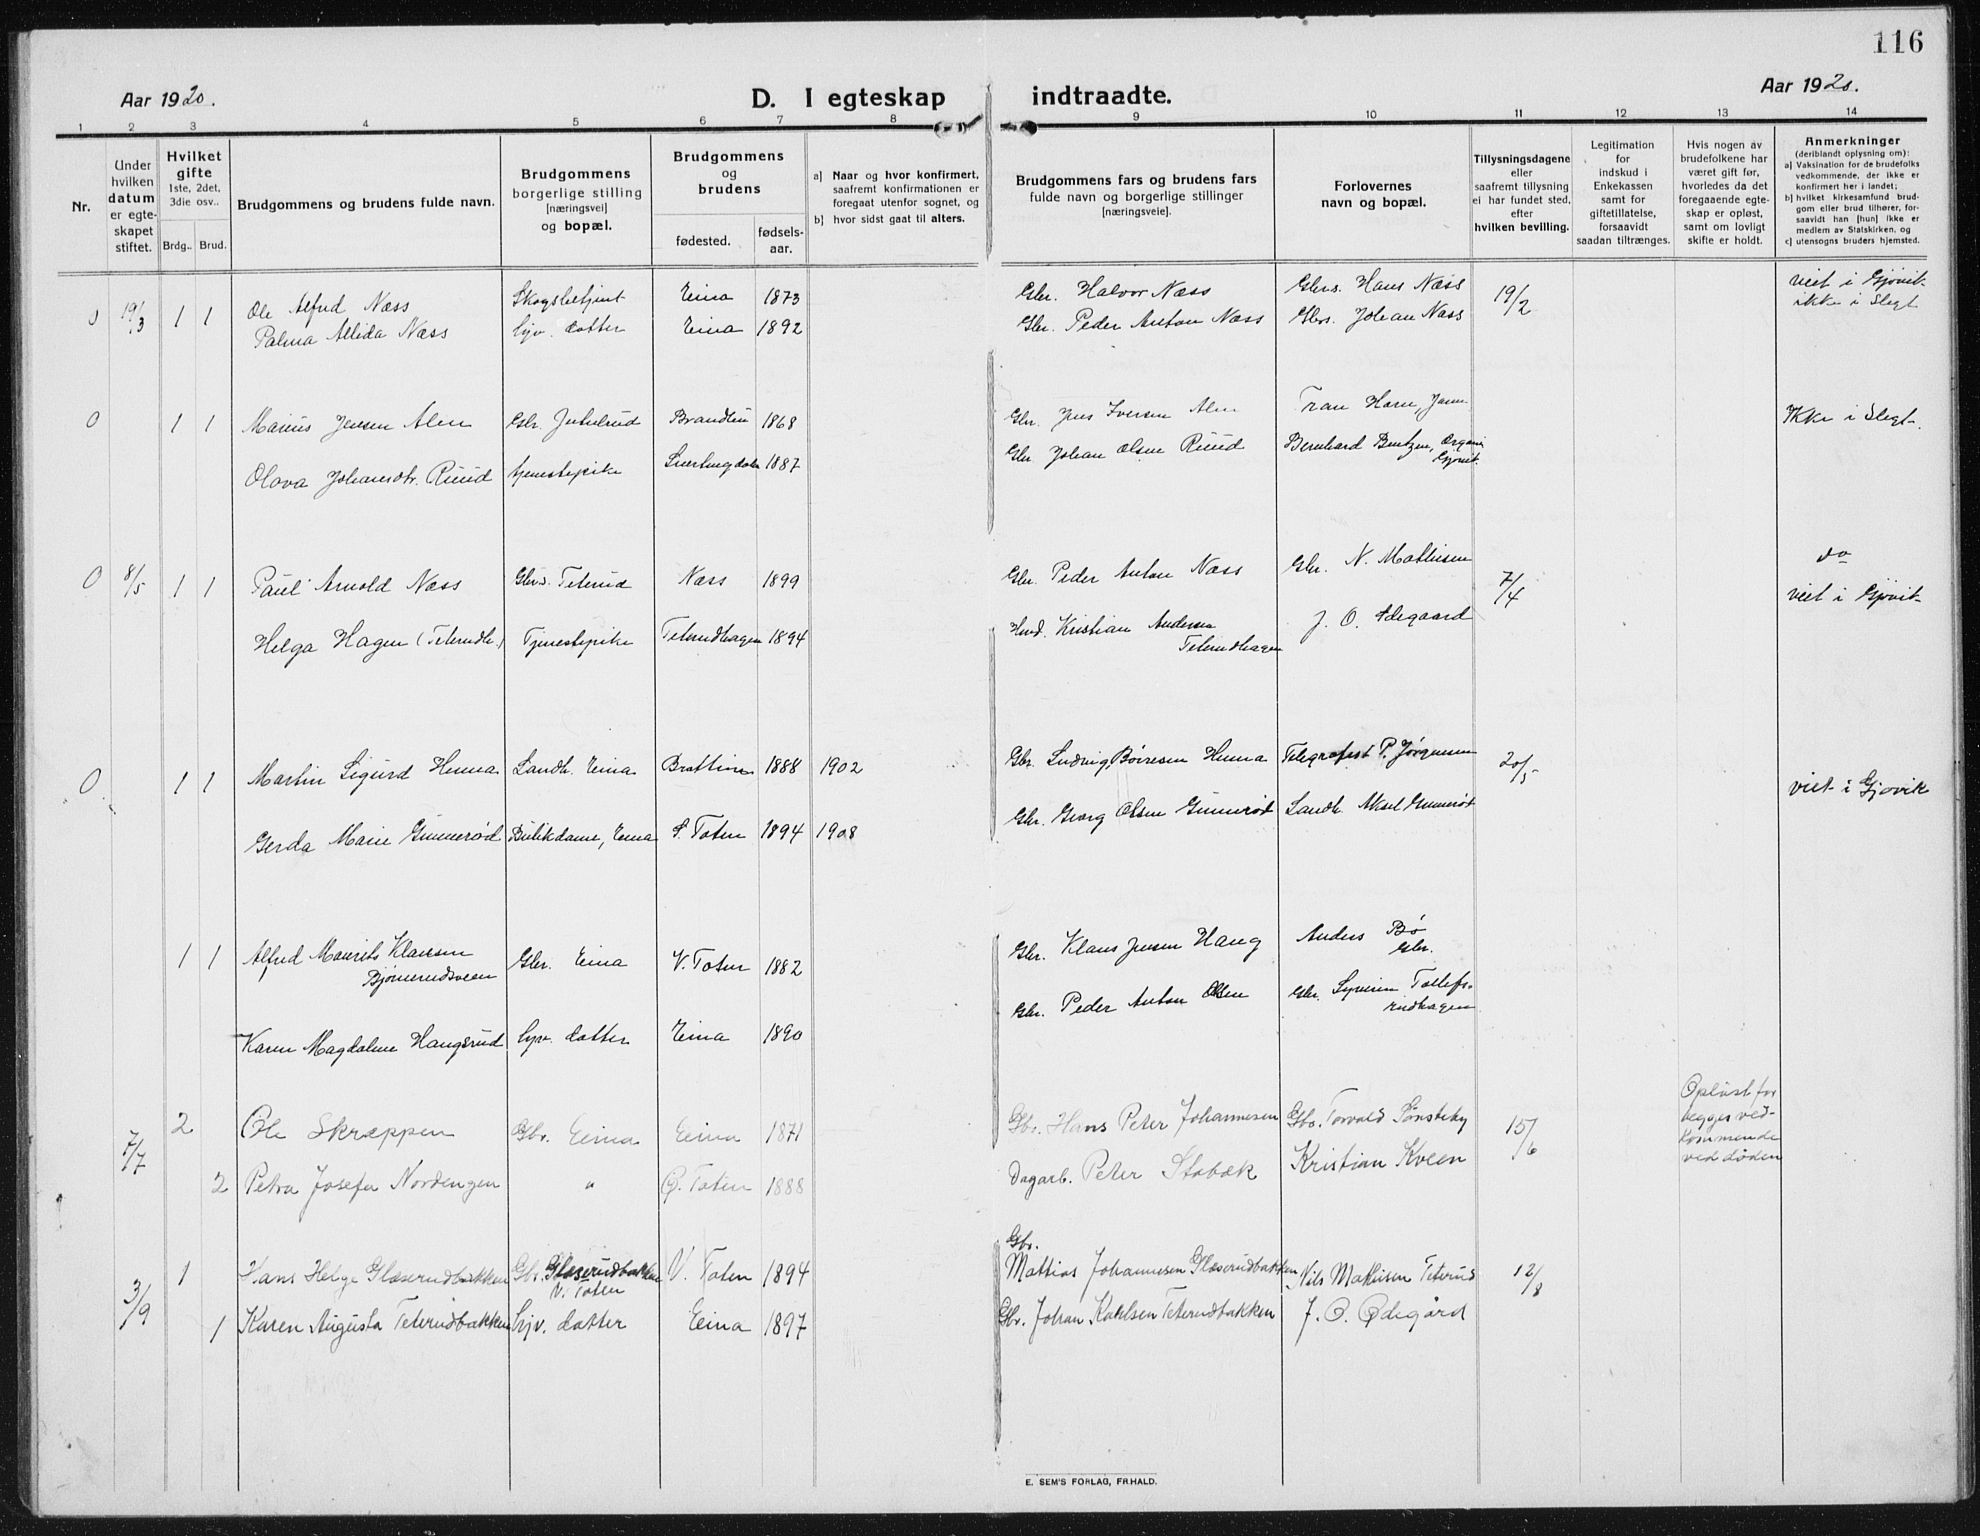 116
Aar 1920.
D. I egteskap indtraadte.
Aar 1920.
1 2 3 4 5 6 7 8 9 10 11 12 13 14
Nr.
Under
hvilken
datum
er egte-
skapet
stiftet.
Hvilket
gifte
1ste, 2det,
3die osv..
Brdg.. Brud.
Brudgommens og brudens fulde navn.
Brudgommens
borgerlige stilling
[næringsvei]
og bopæl.
Brudgommens
og
brudens
fødested.
fødsels-
aar.
a] Naar og hvor konfirmert,
saafremt konfirmationen er
foregaat utenfor sognet, og
b] hvor sidst gaat til alters.
Brudgommens fars og brudens fars
fulde navn og borgerlige stillinger
[næringsveie].
Forlovernes
navn og bopæl.
Tillysningsdagene
eller
saafremt tillysning
ei har fundet sted,
efter
hvilken bevilling.
Legitimation
for
indskud i
Enkekassen
samt for
giftetillatelse,
forsaavidt
saadan tiltrænges.
Hvis nogen av
brudefolkene har
været gift før,
hvorledes da det
foregaaende egte-
skap er opløst,
samt om lovligt
skifte er holdt.
Anmerkninger
(deriblandt oplysning om):
a] Vaksination for de brudefolks
vedkommende, der ikke er
konfirmert her i landet;
b] hvilket kirkesamfund brud-
gom eller brud tilhører, for-
saavidt han [hun] ikke er
medlem av Statskirken, og
c] utensogns bruders hjemsted.
19/3 1 1 Ole Alfred Næss Skogsbetjent Eina 1873 Gbr. Halvor Næss Gbrs. Hans Næss 19/2 viet i Gjøvik
ikke i Slegt
Palma Allida Næss hjv. datter Eina 1892 Gbr. Peder Anton Næss Gbrs. Johan Næss
0 1 1 Marius Jensen Alm Gbr. Jutulrud Brandbu 1868 Gbr. Jens Iversen Alm Ikke i Slegt.
Olava Johansdtr. Ruud tjenestepike 1887 Gbr. Johan Olsen Ruud Bernhard Bentzen,
0 8/5 1 1 Paul Arnold Næss Gbrs. Teterud Næss 1899 Gbr. Peder Anton Næss Gbr. N. Mathisen 7/4 do
viet i Gjøvik
Helga Hagen (Teterudh.) Tjenestepike Teterudhagen 1894 Kristian Andersen
Teterudhagen J. O. Ødegaard
0 1 1 Martin Sigurd Hunna Landh. Eina 1888 1902 Gbr. Ludvig Børresen Hunna Telegrafist P. Jørgensen 20/5 viet i Gjøvik
Gerda Marie Gunnerød Butikdame, Eina S. Toten 1894 1908 Gbr. Georg Olsen Gunnerød Landh. Aksel Gunnerød
1 1 Alfred Maurits Klausen
Bjørnerudsveen Gbr. Eina V. Toten 1882 Gbr. Klaus Jensen Haug Anders Bø
Gbr.
Karen Magdalene Haugsrud hjv. datter Eina 1890 Gbr. Peder Anton Olsen Gbr. Syverin Tollefs-
rudhagen
7/7 2 Ole Skræppen Gbr. Eina Eina 1871 Gbr. Hans Peter Johannesen Gbr. Torvald Sønsteby 15/6 Opløst for
begges ved-
kommende
ved døden
2 Petra Josefa Nordengen " Ø. Toten 1888 Dagarb. Peter Stabæk Kristian Kveen
3/9 1 Hans Helge Glæserudbakken Gbr. Glæserudbakken
V. Toten V. Toten 1894 Gbr.
Mattias Johannesen Glæserudbakken Nils Mathisen Teterud 12/8
1 Karen Augusta Teterudbakken hjv. datter Eina 1897 Gbr. Johan Karlsen Teterudbakken J. O. Ødegård
E. SEM'S FORLAG, FR.HALD.